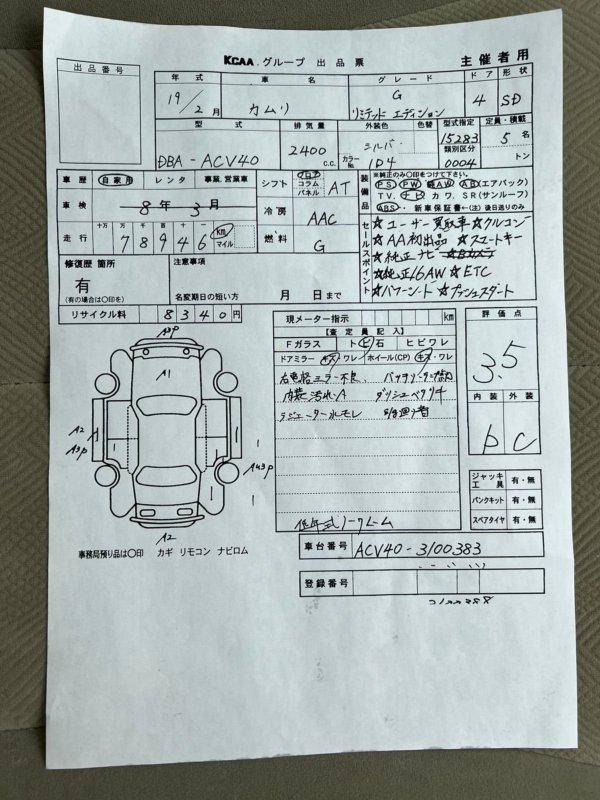 KCAA.グループ 出品票
主催者用
出品番号
年式 車名 グレード ドア 形状
19/2月 カムリ G リミテッド エディション 4 SD
型式 排気量 外装色 色替 型式指定 定員・積載
DBA-ACV40 2400 c.c. シルバー カラーNo. 1D4 15283 類別区分 0004 5 名 トン
車歴 自家用 レンタ 事業、営業車
シフト フロア コラム パネル AT
装備品 *純正のみ〇印をつけて下さい。
PS PW AW AB(エアバック)
TV. ナビ カワ. SR(サンルーフ)
ABS・ 新車保証書←(注)後日送りのみ
車検 8年 3月
冷房 AAC
走行 十万 万 千 百 十 一 78946 km マイル
燃料 G
セールスポイント
☆ユーザー買取車☆クルコン
☆AA初出品 ☆スマートキー
☆純正ナビ ☆Bカメラ
☆純正16AW ☆ETC
☆パワーシート ☆プッシュスタート
修復歴 箇所
有
(有の場合は〇印を)
注意事項
名変期日の短い方 月 日まで
リサイクル料 8340円
現メーター指示 km
【査定員記入】
Fガラス トビ石 ヒビワレ
ドアミラー キズ・ワレ ホイール(CP) キズ・ワレ
右電格ミラー不良、
内装汚れA
ラジエーター水モレ
低年式ノークレーム
評価点
3.5
内装 外装
b C
A1
A2
A3P
A2
ジャッキ工具 有・無
パンクキット 有・無
スペアタイヤ 有・無
事務局預り品は〇印 カギ リモコン ナビロム
車台番号 ACV40-3100383
登録番号